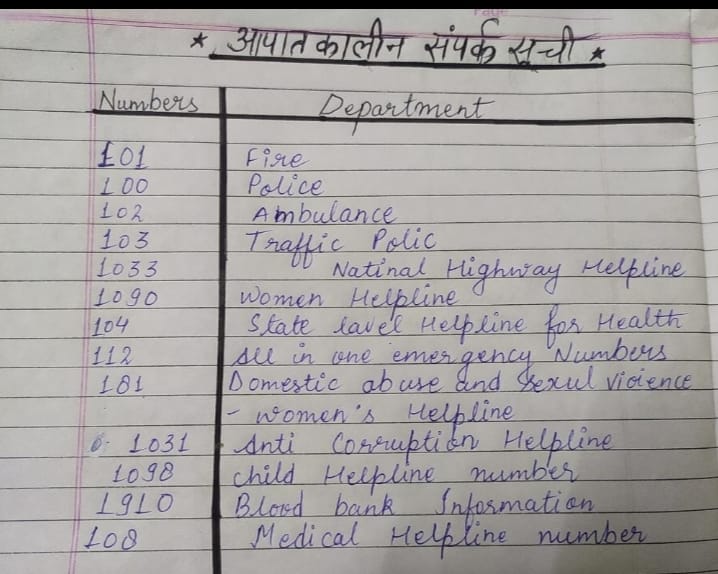 * आपातकालीन संपर्क सूची *
Numbers Department
101 Fire
100 Police
102 Ambulance
103 Traffic Polic
1033 Natinal Highway Helpline
1090 Women Helpline
104 State lavel Helpline for Health
112 All in one emergency Numbers
181 Domestic abuse and Sexul vicience
- women's Helpline
1031 Anti Corruption Helpline
1098 child Helpline number
1910 Blood bank Information
108 Medical Helpline number